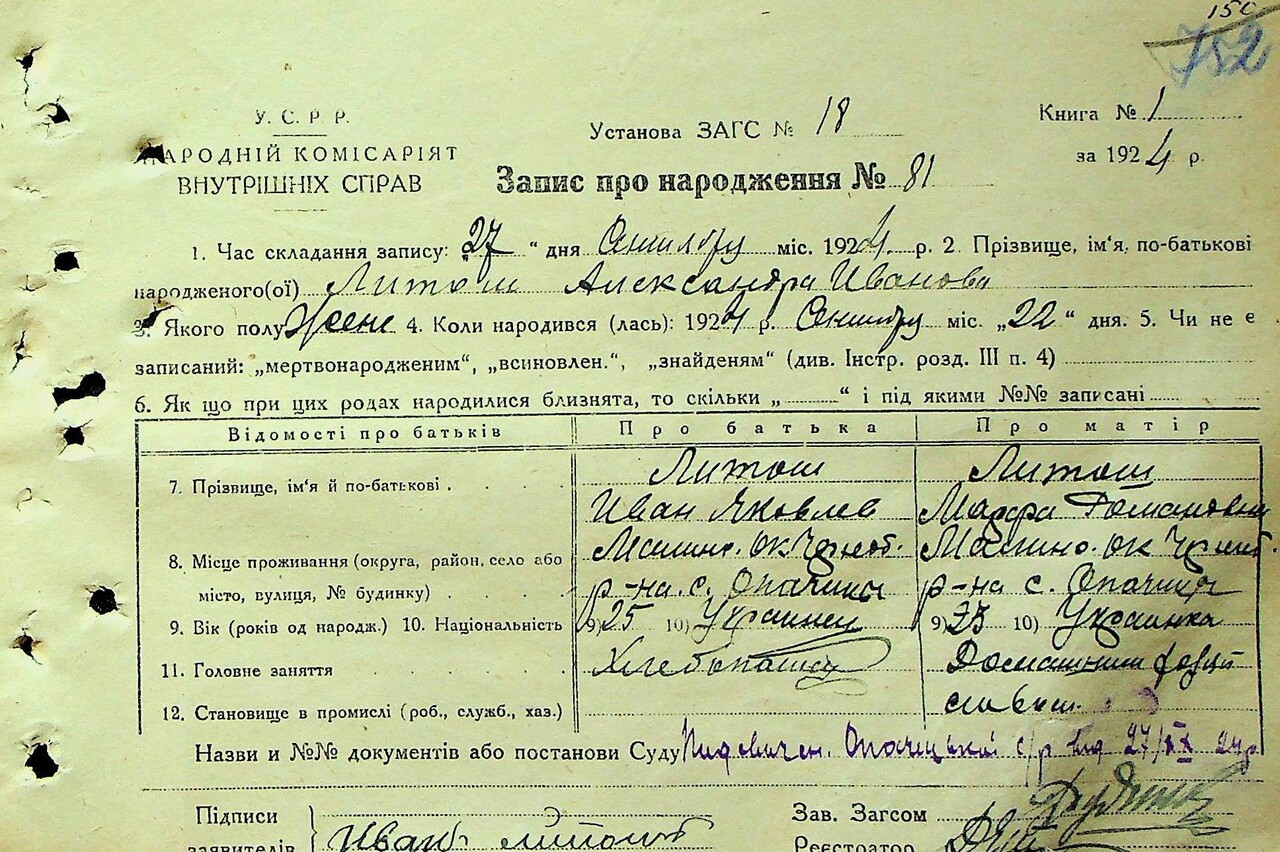 150
752
У. С. Р. Р.
НАРОДНІЙ КОМІСАРІЯТ
ВНУТРІШНІХ СПРАВ
Установа ЗАГС № 18
Книга № 1
за 1924 р.
Запис про народження № 81
1. Час складання запису: 27 “ дня Сентября міс. 1924 р. 2. Прізвище, ім‘я, по-батькові
народженого(ої) Литош Александра Иванова
3. Якого полу Женс 4. Коли народився (лась): 1924 р. Сентября міс. „22“ дня. 5. Чи не є
записаний: „мертвонародженим“, „всиновлен.“, „знайденям“ (див. Інстр. розд. III п. 4)
6. Як що при цих родах народилися близнята, то скільки „ “ і під якими №№ записані
Відомості про батьків Про батька Про матір
7. Прізвище, ім‘я й по-батькові . Литош Литош
Иван Яковлев Марфа Романовна
8. Місце проживання (округа, район, село або Малино. ок Малино. ок
місто, вулиця, № будинку) р-на с. Опачичи р-на с. Опачичи
9. Вік (років од народж.) 10. Національність 9) 25 10) Украинец 9) 23 10) Украинка
11. Головне заняття Хлебопашец Домашним
12. Становище в промислі (роб., служб., хаз.)
Назви и №№ документів або постанови Суду Опачицької с/р від 27/IX 24р
Підписи
заявителів Иван Литош
Зав. Загсом
Реєстратор